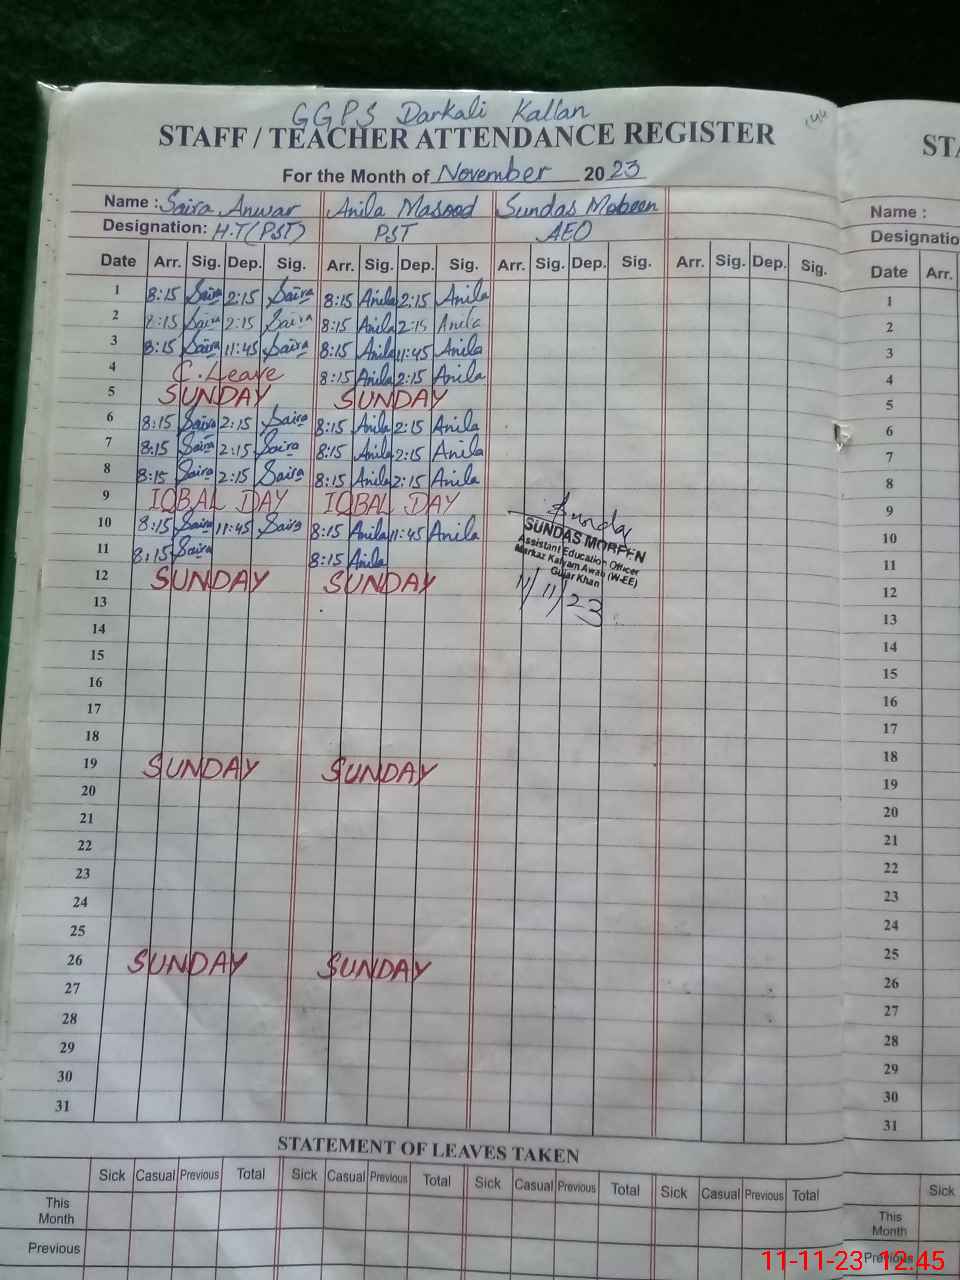 GGPS Darkali Kallan
STAFF / TEACHER ATTENDANCE REGISTER
For the Month of November 20 23
Name : Saira Anwar Anila Masood Sundas Mobeen
Designation: H.T(PST) PST AEO
Date Arr. Sig. Dep. Sig. Arr. Sig. Dep. Sig. Arr. Sig. Dep. Sig. Arr. Sig. Dep. Sig.
1 8:15 Saira 2:15 Saira 8:15 Anila 2:15 Anila
2 8:15 Saira 2:15 Saira 8:15 Anila 2:15 Anila
3 8:15 Saira 11:45 Saira 8:15 Anila 11:45 Anila
4 C.Leave 8:15 Anila 2:15 Anila
5 SUNDAY SUNDAY
6 8:15 Saira 2:15 Saira 8:15 Anila 2:15 Anila
7 8:15 Saira 2:15 Saira 8:15 Anila 2:15 Anila
8 8:15 Saira 2:15 Saira 8:15 Anila 2:15 Anila
9 IQBAL DAY IQBAL DAY
10 8:15 Saira 11:45 Saira 8:15 Anila 11:45 Anila
11 8:15 Saira 8:15 Anila
12 SUNDAY SUNDAY
13
14
15
16
17
18
19 SUNDAY SUNDAY
20
21
22
23
24
25
26 SUNDAY SUNDAY
27
28
29
30
31
SUNDAS MOBEEN
Assistant Education Officer
Markaz Kalyam Awan (W-EE)
Gujar Khan
11/11/23
STATEMENT OF LEAVES TAKEN
Sick Casual Previous Total Sick Casual Previous Total Sick Casual Previous Total Sick Casual Previous Total
This
Month
Previous
STA
Name :
Designatio
Date Arr.
1
2
3
4
5
6
7
8
9
10
11
12
13
14
15
16
17
18
19
20
21
22
23
24
25
26
27
28
29
30
31
Sick
This
Month
Previous
11-11-23 12.45